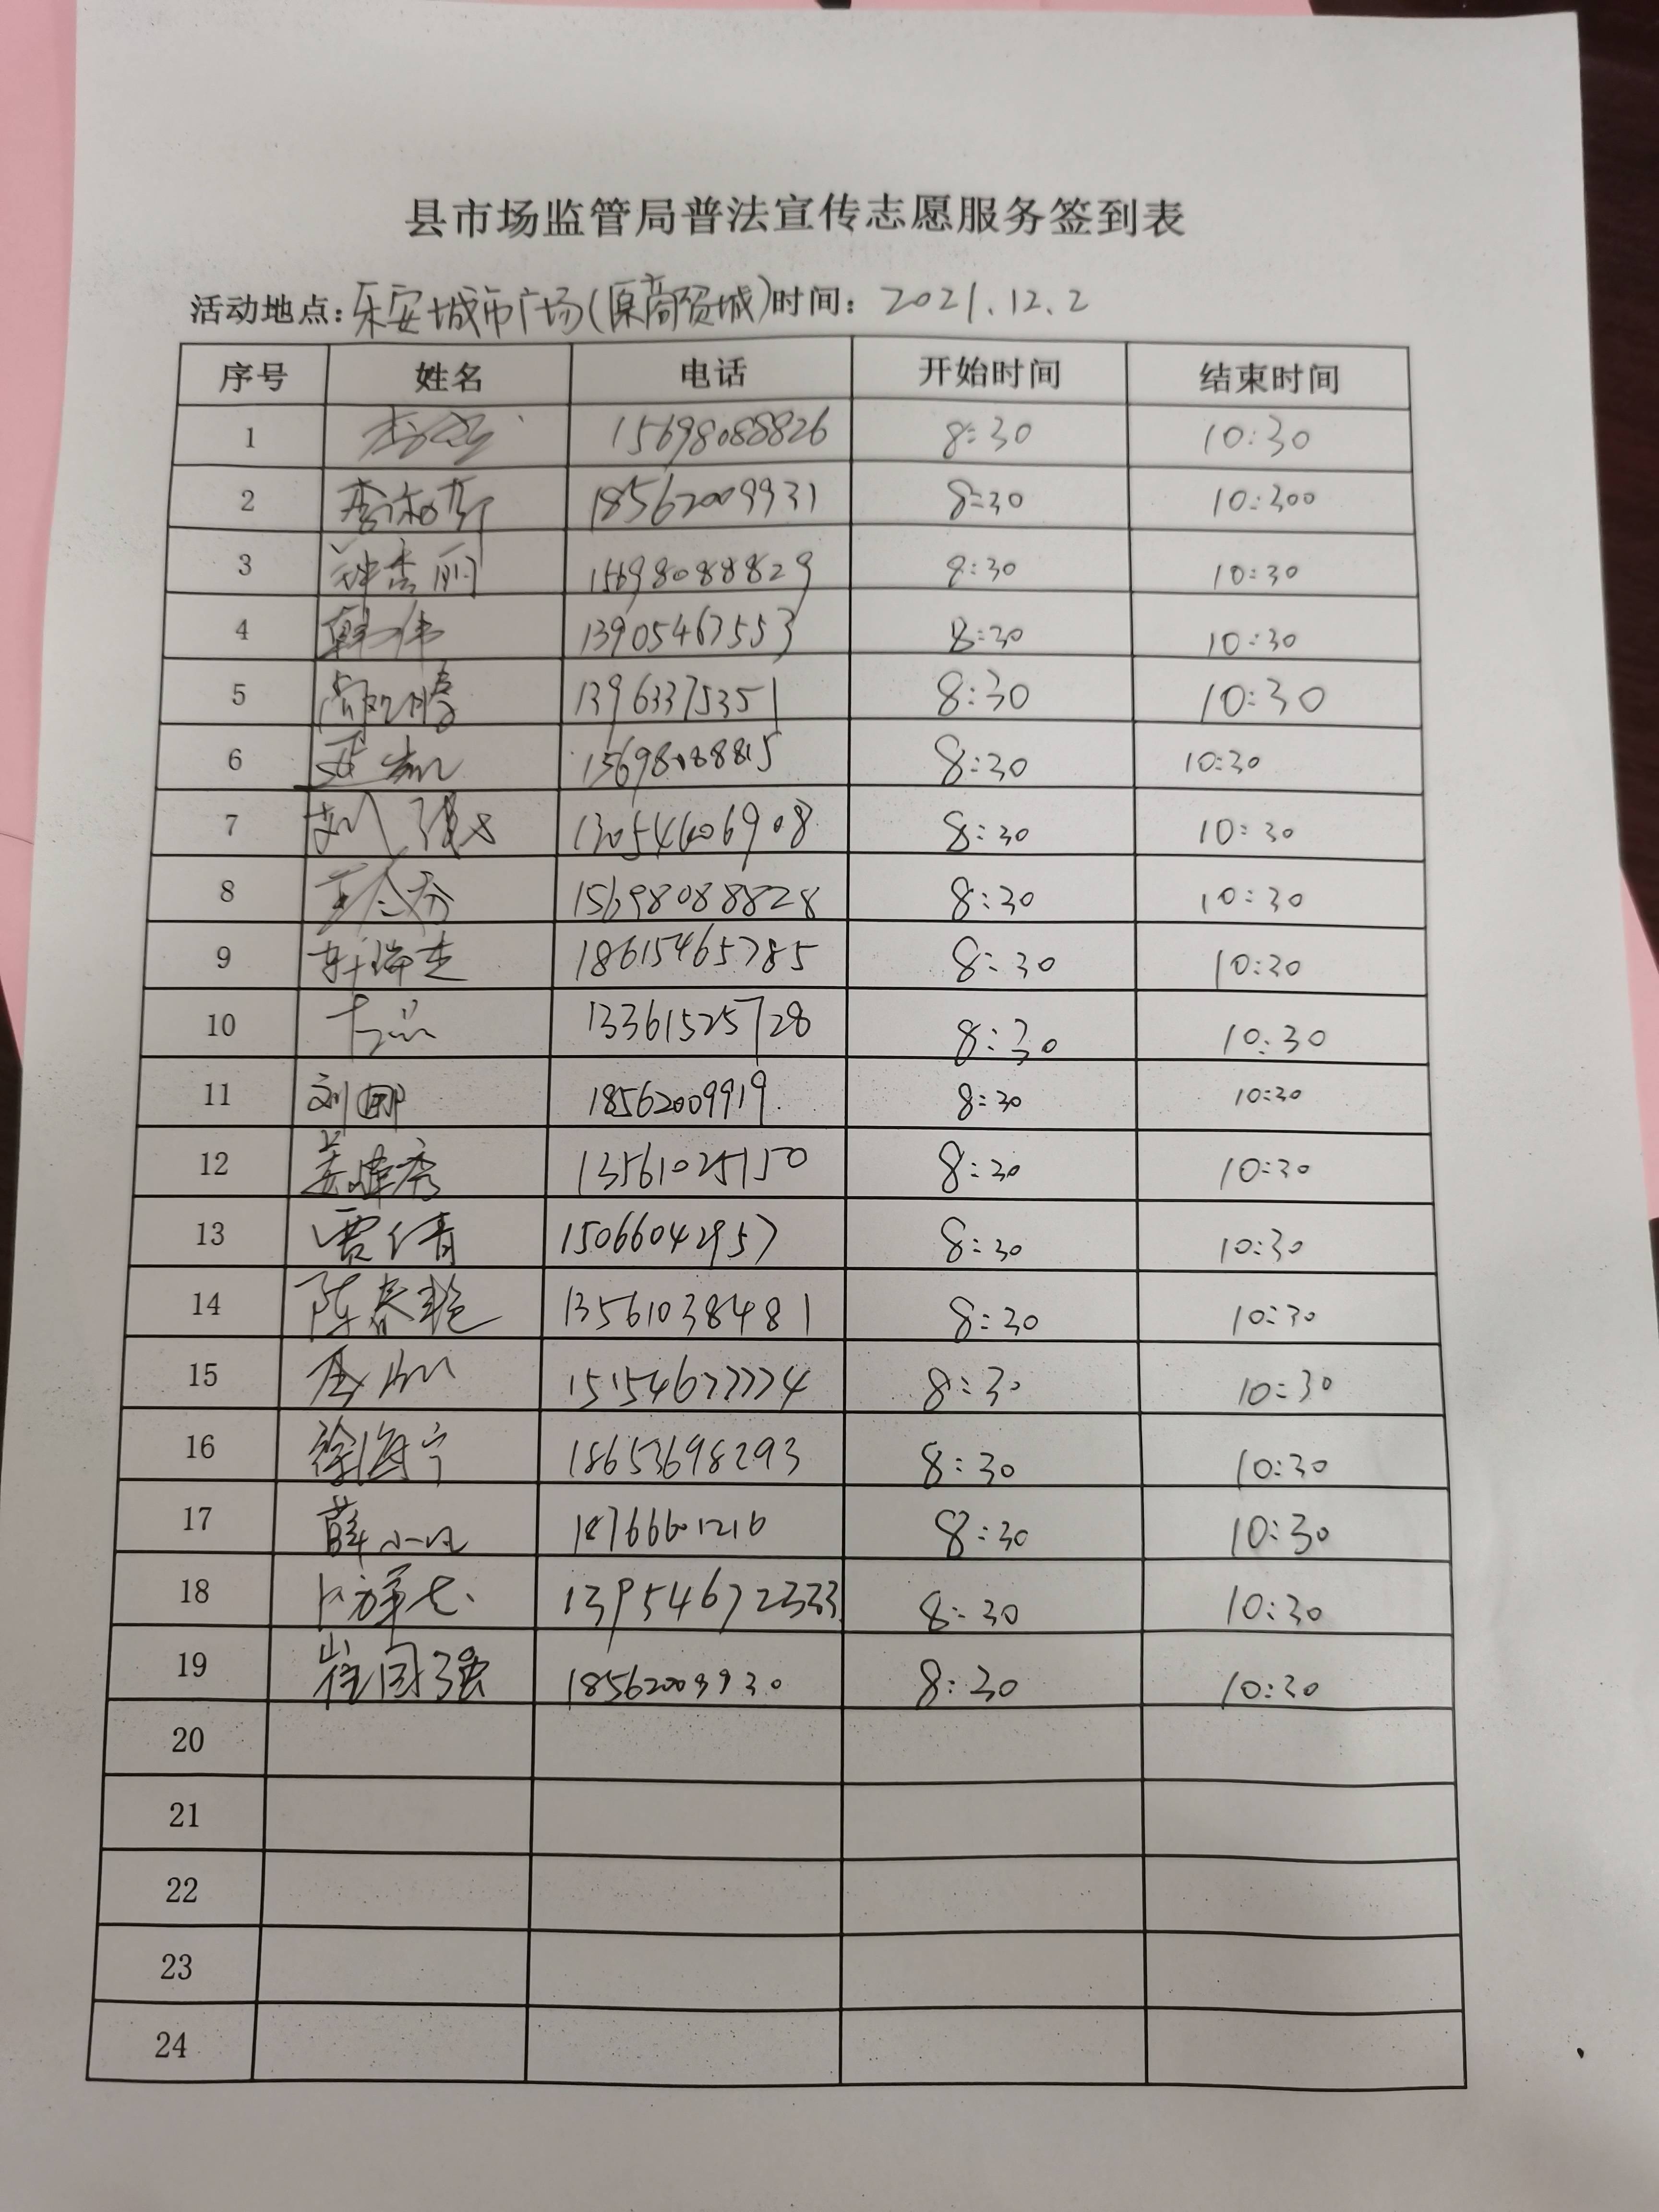 县市场监管局普法宣传志愿服务签到表
活动地点:乐安城市广场(原商贸城)时间: 2021.12.2
序号 姓名 电话 开始时间 结束时间
1 15698088826 8:30 10:30
2 18562009931 8:30 10:300
3 钟秀丽 15698088829 8:30 10:30
4 韩伟 13905467553 8:30 10:30
5 13963375351 8:30 10:30
6 15698088815 8:30 10:30
7 13054606908 8:30 10:30
8 15698088828 8:30 10:30
9 18615465785 8:30 10:30
10 13361525728 8:30 10:30
11 刘娜 18562009919 8:30 10:30
12 13561025150 8:30 10:30
13 贾倩 15066042957 8:30 10:30
14 陈春艳 13561038481 8:30 10:30
15 15154677774 8:30 10:30
16 徐海宁 18653698293 8:30 10:30
17 薛小凡 18766601216 8:30 10:30
18 13954672333 8:30 10:30
19 崔国强 18562009930 8:30 10:30
20
21
22
23
24